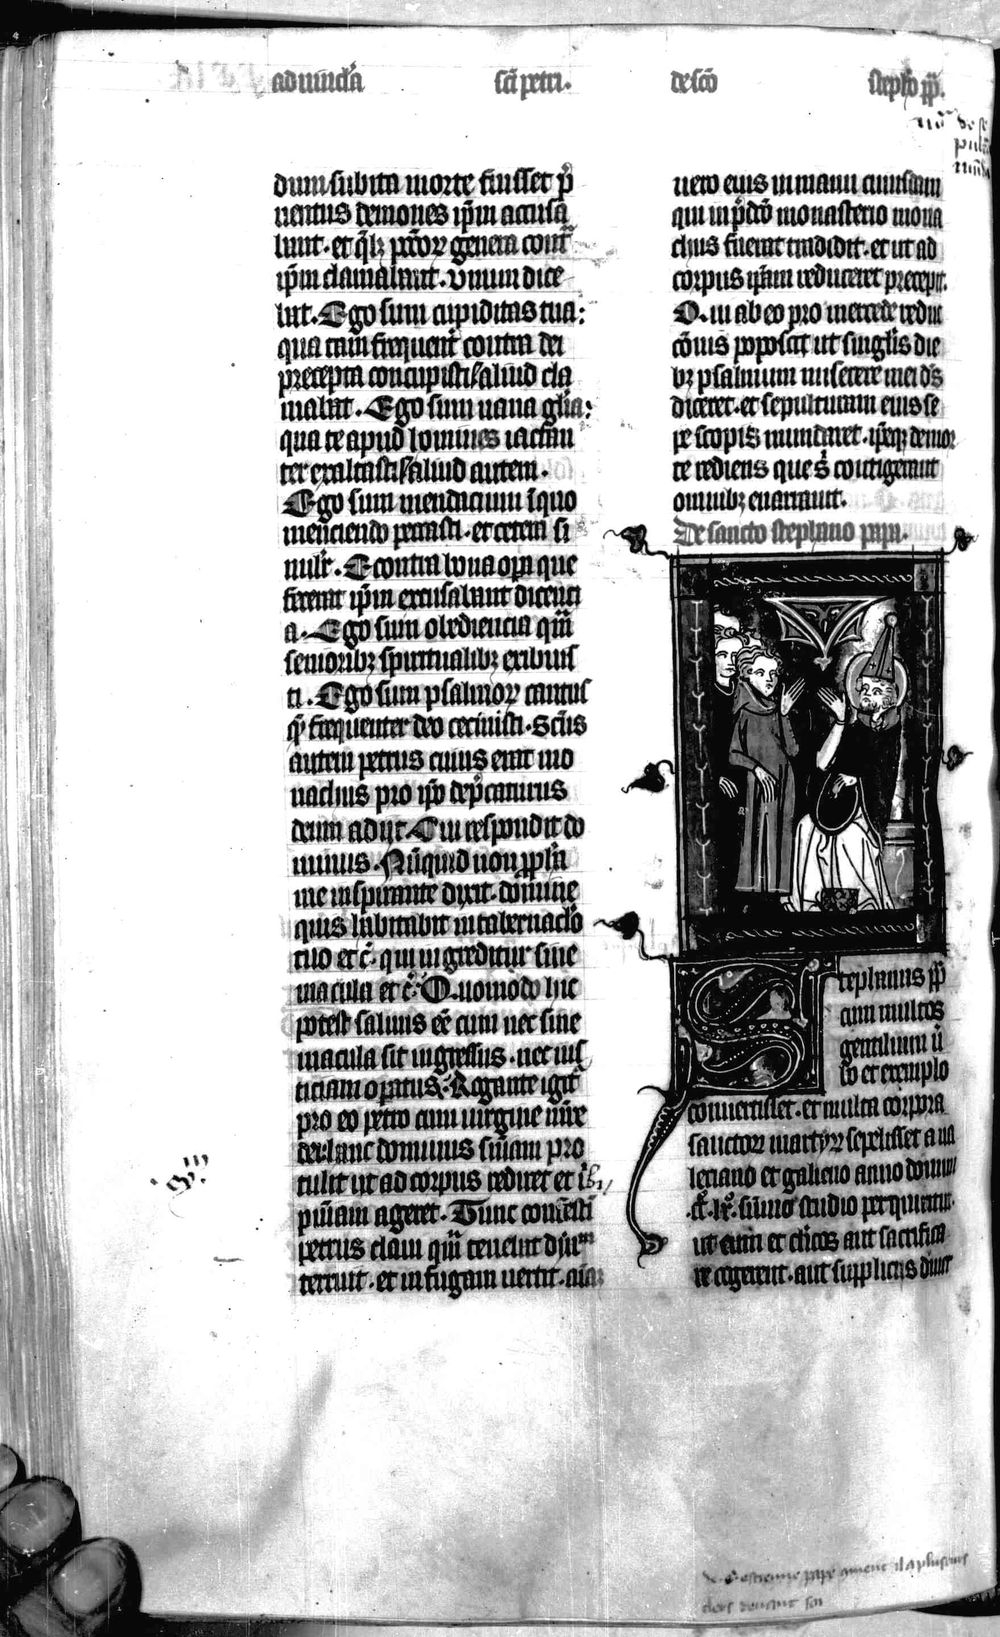 ad uincła sc̄i petri. de sc̄o steph̄o pp̄.
dum subita morte fuisset p̄
uentus demones ip̄m accusa
bant. et q̄lib; pctōꝝ genera cont̄
ip̄m clamabant. Vnum dice
bat. Ego sum cupiditas tua:
qua tam frequent̄ contra dei
precepta concupisti. aliud cla
mabat. Ego sum uana gl̄ia:
qua te apud homines iactan
ter exaltasti. aliud autem.
Ego sum mendacium ī quo
menciendo peccasti. et cetera si
milr̄. E contra bona oꝑa que
fecerat ip̄m excusabant dicenti
a. Ego sum obediencia qūā
senioribꝫ spiritualibꝫ exibuis
ti. Ego sum psalmoꝝ cantus
q̄ frequenter deo cecinisti. Sc̄us
autem petrus cuius erat mo
nachus pro ip̄o dep̄caturus
deum adijt. Cui respondit do
minus. Nūquid non ꝓph̄a
me inspirante dixit. domine
quis habitabit in tabernac̄lo
tuo et c̄. qui ingreditur sine
macula et c̄. Quomodo hic
potest saluus eē cum nec sine
macula sit ingressus. nec ius
ticiam oꝑatus. Rogante igit̄
pro eo petro cum uirgine m̄re
dei. hanc dominus sn̄iam pro
tulit ut ad corpus rediret et ibi
pn̄iam ageret. Tunc
petrus claui qūā tenebat
terruit. et in fugam uertit. aīa
uero eius in manu cuiusdam
qui in p̄dc̄o monasterio mona
chus fuerat tradidit. et ut ad
corpus ip̄am reduceret precepit.
Qui ab eo pro mercede redu
cōnis poposcit ut singl̄is die
bꝫ psalmum miserere mei ds̄
diceret. et sepulturam eius se
pe scopis mundaret. ip̄eqꝫ de mor
te rediens que s̄ contigerant
omnibꝫ enarrauit.
De sancto stephano papa.
Stephanus pp̄
cum multos
gentilium ū
bo et exemplo
conuertisset. et multa corpora
sanctoꝝ martyꝝ sepelisset a ua
leriano et galieno anno domini
.cc̄. lx. sūmo studio perquiritur.
ut eum et cl̄icos aut sacrifica
re cogerent. aut suppliciis diuer
de s. estienne pape
clers deuant